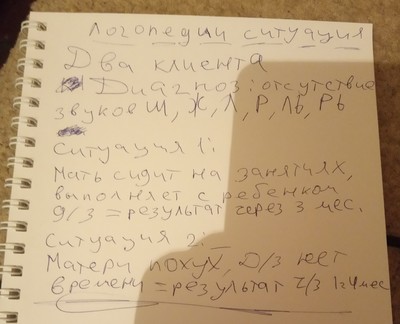 Логопедии ситуация
Два клиента
Диагноз: отсутствие
звуков Ш, Ж, Л, Р, ЛЬ, РЬ
Ситуация 1:
Мать сидит на занятиях,
выполняет с ребенком
д/з = результат через 3 мес.
Ситуация 2:
Матери похух, Д/з нет
времени = результат ч/з мес